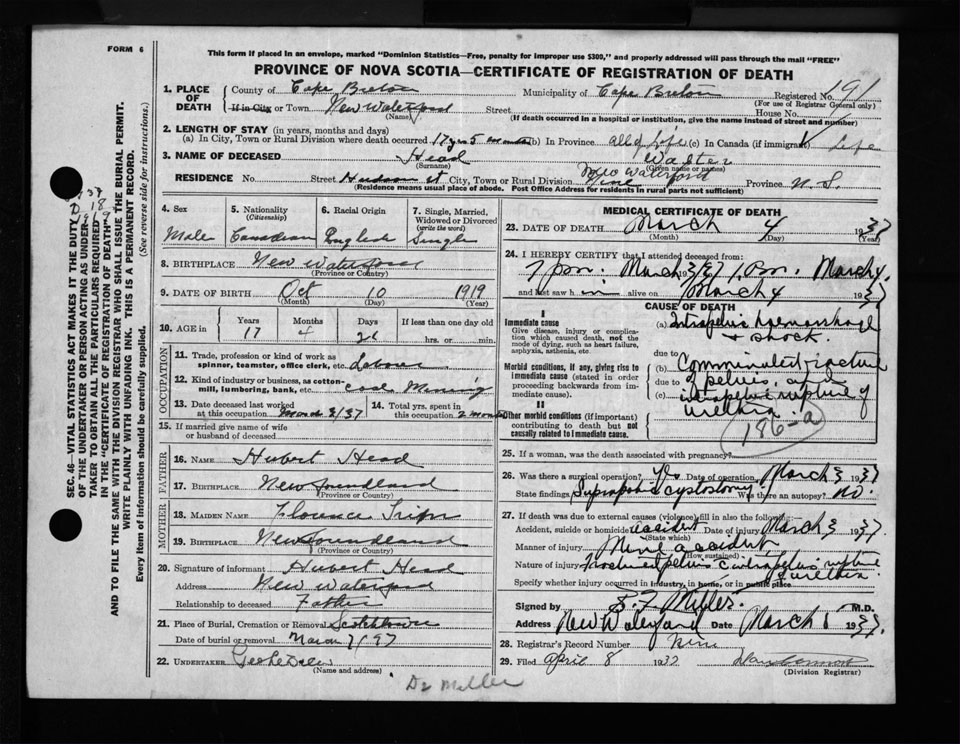 FORM 6
This form if placed in an envelope, marked "Dominion Statistics—Free, penalty for improper use $300," and properly addressed will pass through the mail "FREE"
PROVINCE OF NOVA SCOTIA—CERTIFICATE OF REGISTRATION OF DEATH
1. PLACE OF DEATH County of Cape Breton Municipality of Cape Breton Registered No. 191
(For use of Registrar General only)
If in City or Town New Waterford Street House No.
(Name) (If death occurred in a hospital or institution, give the name instead of street and number)
2. LENGTH OF STAY (in years, months and days)
(a) In City, Town or Rural Division where death occurred 17 yrs 5 months (b) In Province all of life (c) In Canada (if immigrant) Life
3. NAME OF DECEASED Head Walter
(Surname) (Given name or names)
RESIDENCE No. Street Hudson st City, Town or Rural Division New Waterford Mine Province N. S.
(Residence means usual place of abode. Post Office Address for residents in rural parts not sufficient)
4. Sex Male
5. Nationality (Citizenship) Canadian
6. Racial Origin English
7. Single, Married, Widowed or Divorced (write the word) Single
8. BIRTHPLACE New Waterford
(Province or Country)
9. DATE OF BIRTH Oct 10 1919
(Month) (Day) (Year)
10. AGE in Years 17 Months 4 Days 21 If less than one day old hrs. or min.
OCCUPATION
11. Trade, profession or kind of work as spinner, teamster, office clerk, etc. Labour
12. Kind of industry or business, as cotton-mill, lumbering, bank, etc. Coal Mining
13. Date deceased last worked at this occupation March 3/37
14. Total yrs. spent in this occupation 2 months
15. If married give name of wife or husband of deceased
FATHER
16. NAME Hubert Head
17. BIRTHPLACE Newfoundland
(Province or Country)
MOTHER
18. MAIDEN NAME Florence
19. BIRTHPLACE Newfoundland
(Province or Country)
20. Signature of informant Hubert Head
Address New Waterford
Relationship to deceased Father
21. Place of Burial, Cremation or Removal Scotchtown
Date of burial or removal March 7/37
22. UNDERTAKER
(Name and address)
Dr Miller
MEDICAL CERTIFICATE OF DEATH
23. DATE OF DEATH March 4 1937
(Month) (Day) (Year)
24. I HEREBY CERTIFY that I attended deceased from:
7 pm. March 3/37 1 pm. March 4
and last saw him alive on March 4 1937
CAUSE OF DEATH
I
Immediate cause
Give disease, injury or complication which caused death, not the mode of dying, such as heart failure, asphyxia, asthenia, etc.
(a) Intrapelvic hemorrhage & shock.
Morbid conditions, if any, giving rise to immediate cause (stated in order proceeding backwards from immediate cause).
due to
(b) Comminuted fracture
due to of pelvis, again
(c) intrapelvic rupture of urethra.
II
Other morbid conditions (if important) contributing to death but not causally related to immediate cause.
186-a
25. If a woman, was the death associated with pregnancy?
26. Was there a surgical operation? Yes Date of operation March 3 1937
State findings Suprapubic cystostomy Was there an autopsy? No.
27. If death was due to external causes (violence) fill in also the following:
Accident, suicide or homicide accident Date of injury March 3 1937.
(State which)
Manner of injury Mine accident
(How sustained)
Nature of injury Fractured pelvis & intrapelvic rupture of urethra.
Specify whether injury occurred in industry, in home, or in public place
Signed by S. F. Miller M.D.
Address New Waterford Date March 1937
28. Registrar's Record Number Nine
29. Filed April 8 1937
(Division Registrar)
SEC. 46—VITAL STATISTICS ACT MAKES IT THE DUTY
OF THE UNDERTAKER OR PERSON ACTING AS UNDERTAKER TO OBTAIN ALL THE PARTICULARS REQUIRED
IN THE "CERTIFICATE OF REGISTRATION OF DEATH"
AND TO FILE THE SAME WITH THE DIVISION REGISTRAR WHO SHALL ISSUE THE BURIAL PERMIT.
WRITE PLAINLY WITH UNFADING INK. THIS IS A PERMANENT RECORD.
Every item of information should be carefully supplied. (See reverse side for instructions.)